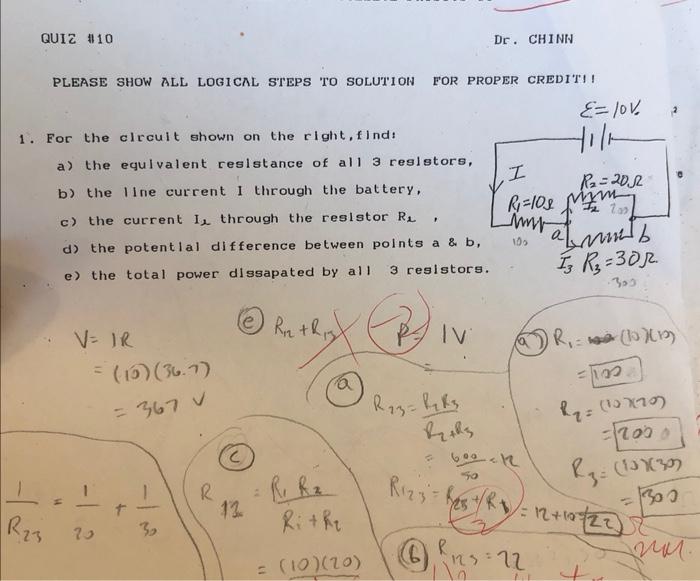 QUIZ #10
Dr. CHINN
PLEASE SHOW ALL LOGICAL STEPS TO SOLUTION FOR PROPER CREDIT!!
1. For the circuit shown on the right, find:
a) the equivalent resistance of all 3 resistors,
b) the line current I through the battery,
c) the current I₂ through the resistor R₂ ,
d) the potential difference between points a & b,
e) the total power dissapated by all 3 resistors.
ℰ=10V.
I
R₂=20Ω
R₁=10Ω
I₂
200
100
a
b
I₃ R₃=30Ω
300
V= IR
= (10)(36.7)
= 367 V
(e) R₁₂ + R₁₃
P= IV
(a) R₁= (10)(10)
= 100
R₂= (10)(20)
= 200
R₃= (10)(30)
= 300
(a)
R₂₃= R₂R₃
R₂+R₃
= 600 = 12
50
R₁₂₃= R₂₃ + R₁ = 12+10= 22
(b) R₁₂₃ = 22
(c)
R₁₂ = R₁ R₂
R₁ + R₂
= (10)(20)
1/R₂₃ = 1/20 + 1/30